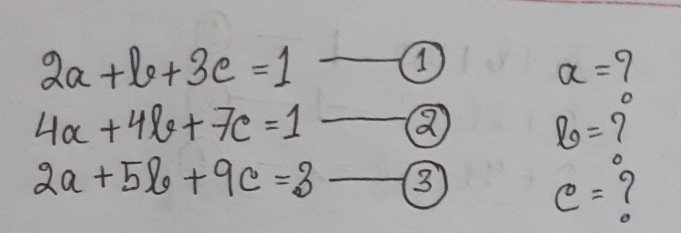 2a + b + 3c = 1 — ① a = ?
4a + 4b + 7c = 1 — ② b = ?
2a + 5b + 9c = 3 — ③ c = ?